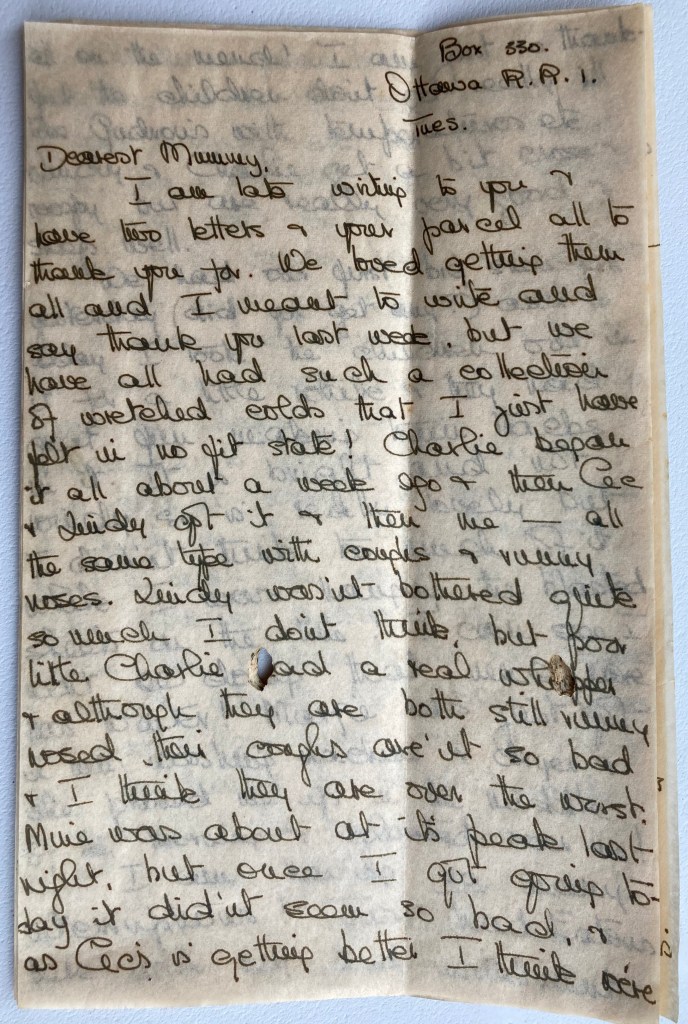 Box 330.
Ottawa R.R.1.
Tues.
Dearest Mummy,
I am late writing to you &
have two letters & your parcel all to
thank you for. We loved getting them
all and I meant to write and
say thank you last week, but we
have all had such a collection
of wretched colds that I just have
felt in no fit state! Charlie began
it all about a week ago & then Cec
& Lindy got it & then me — all
the same type with coughs & runny
noses. Lindy was'nt bothered quite
so much I dont think, but poor
little Charlie had a real whopper
& although they are both still runny
nosed, their coughs are'nt so bad
& I think they are over the worst.
Mine was about at its peak last
night, but once I got going to-
day it did'nt seem so bad, &
as Cec's is getting better I think we're